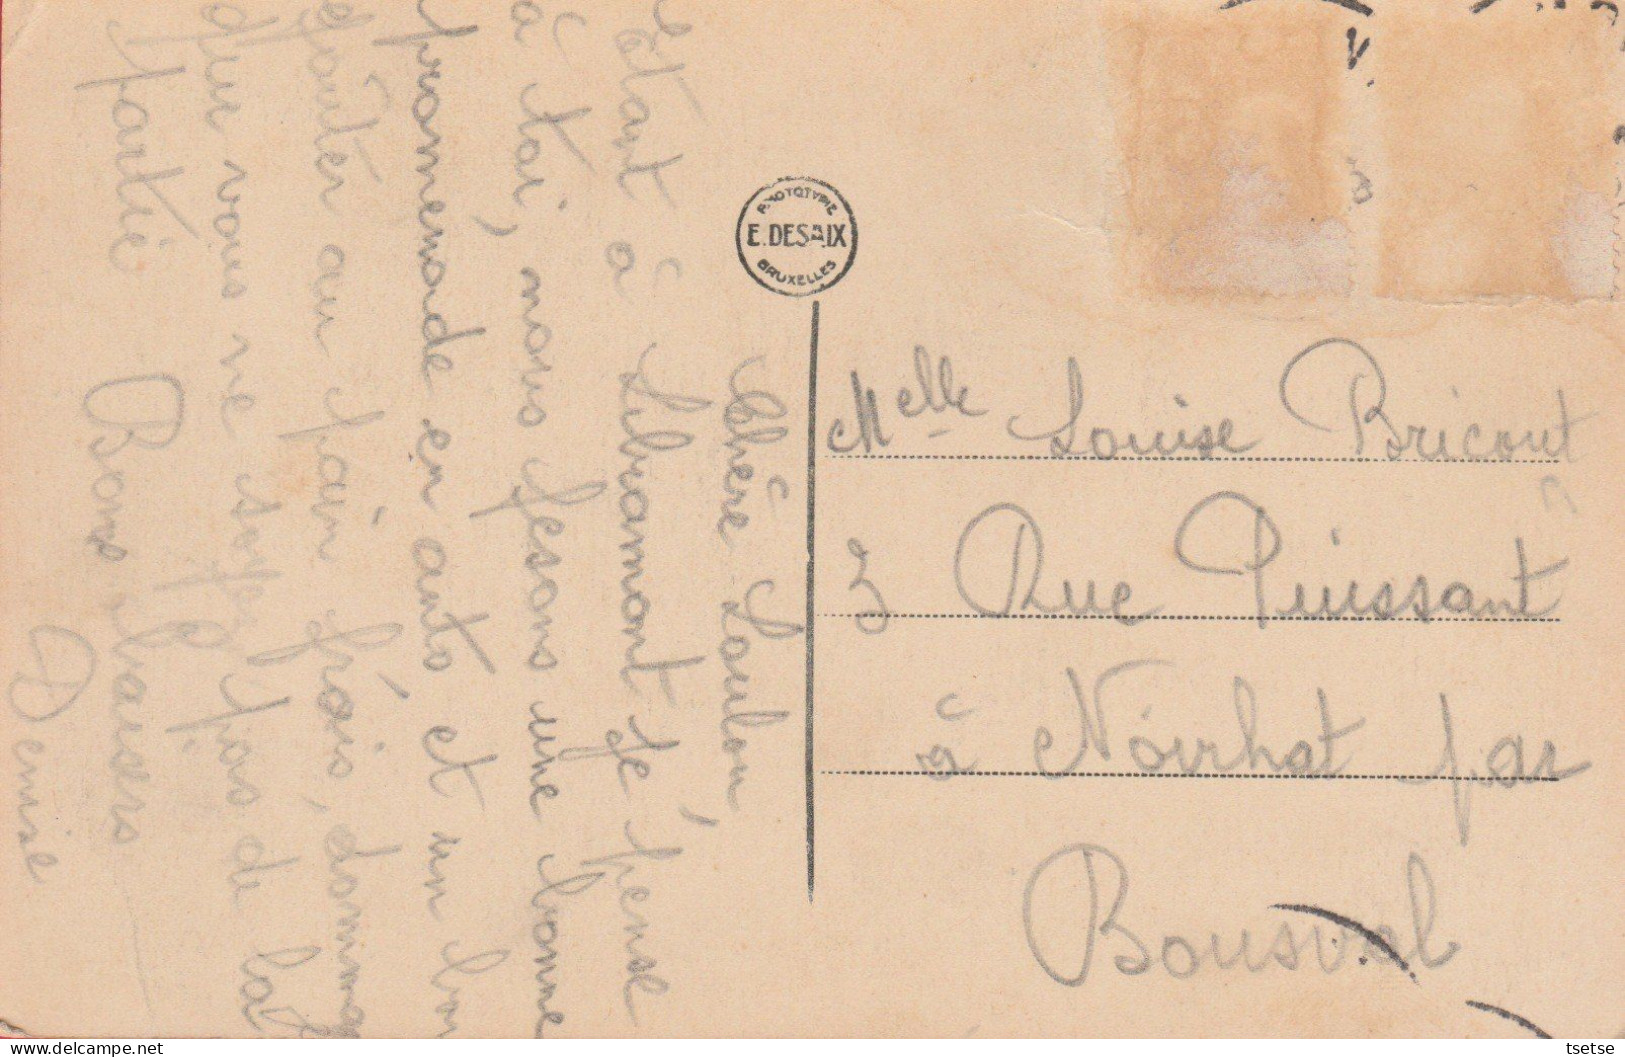 Chère Loulou,
Étant à Libramont je pense
à toi, nous fesons une bonne
promenade en auto et un bon
goûter au pain frais, dommage
que vous ne soyez pas de la
partie Bons baisers
Denise
PHOTOTYPIE
E. DESAIX
BRUXELLES
Melle Louise Bricout
3 Rue Puissant
à Noirhat par
Bousval
tsetse